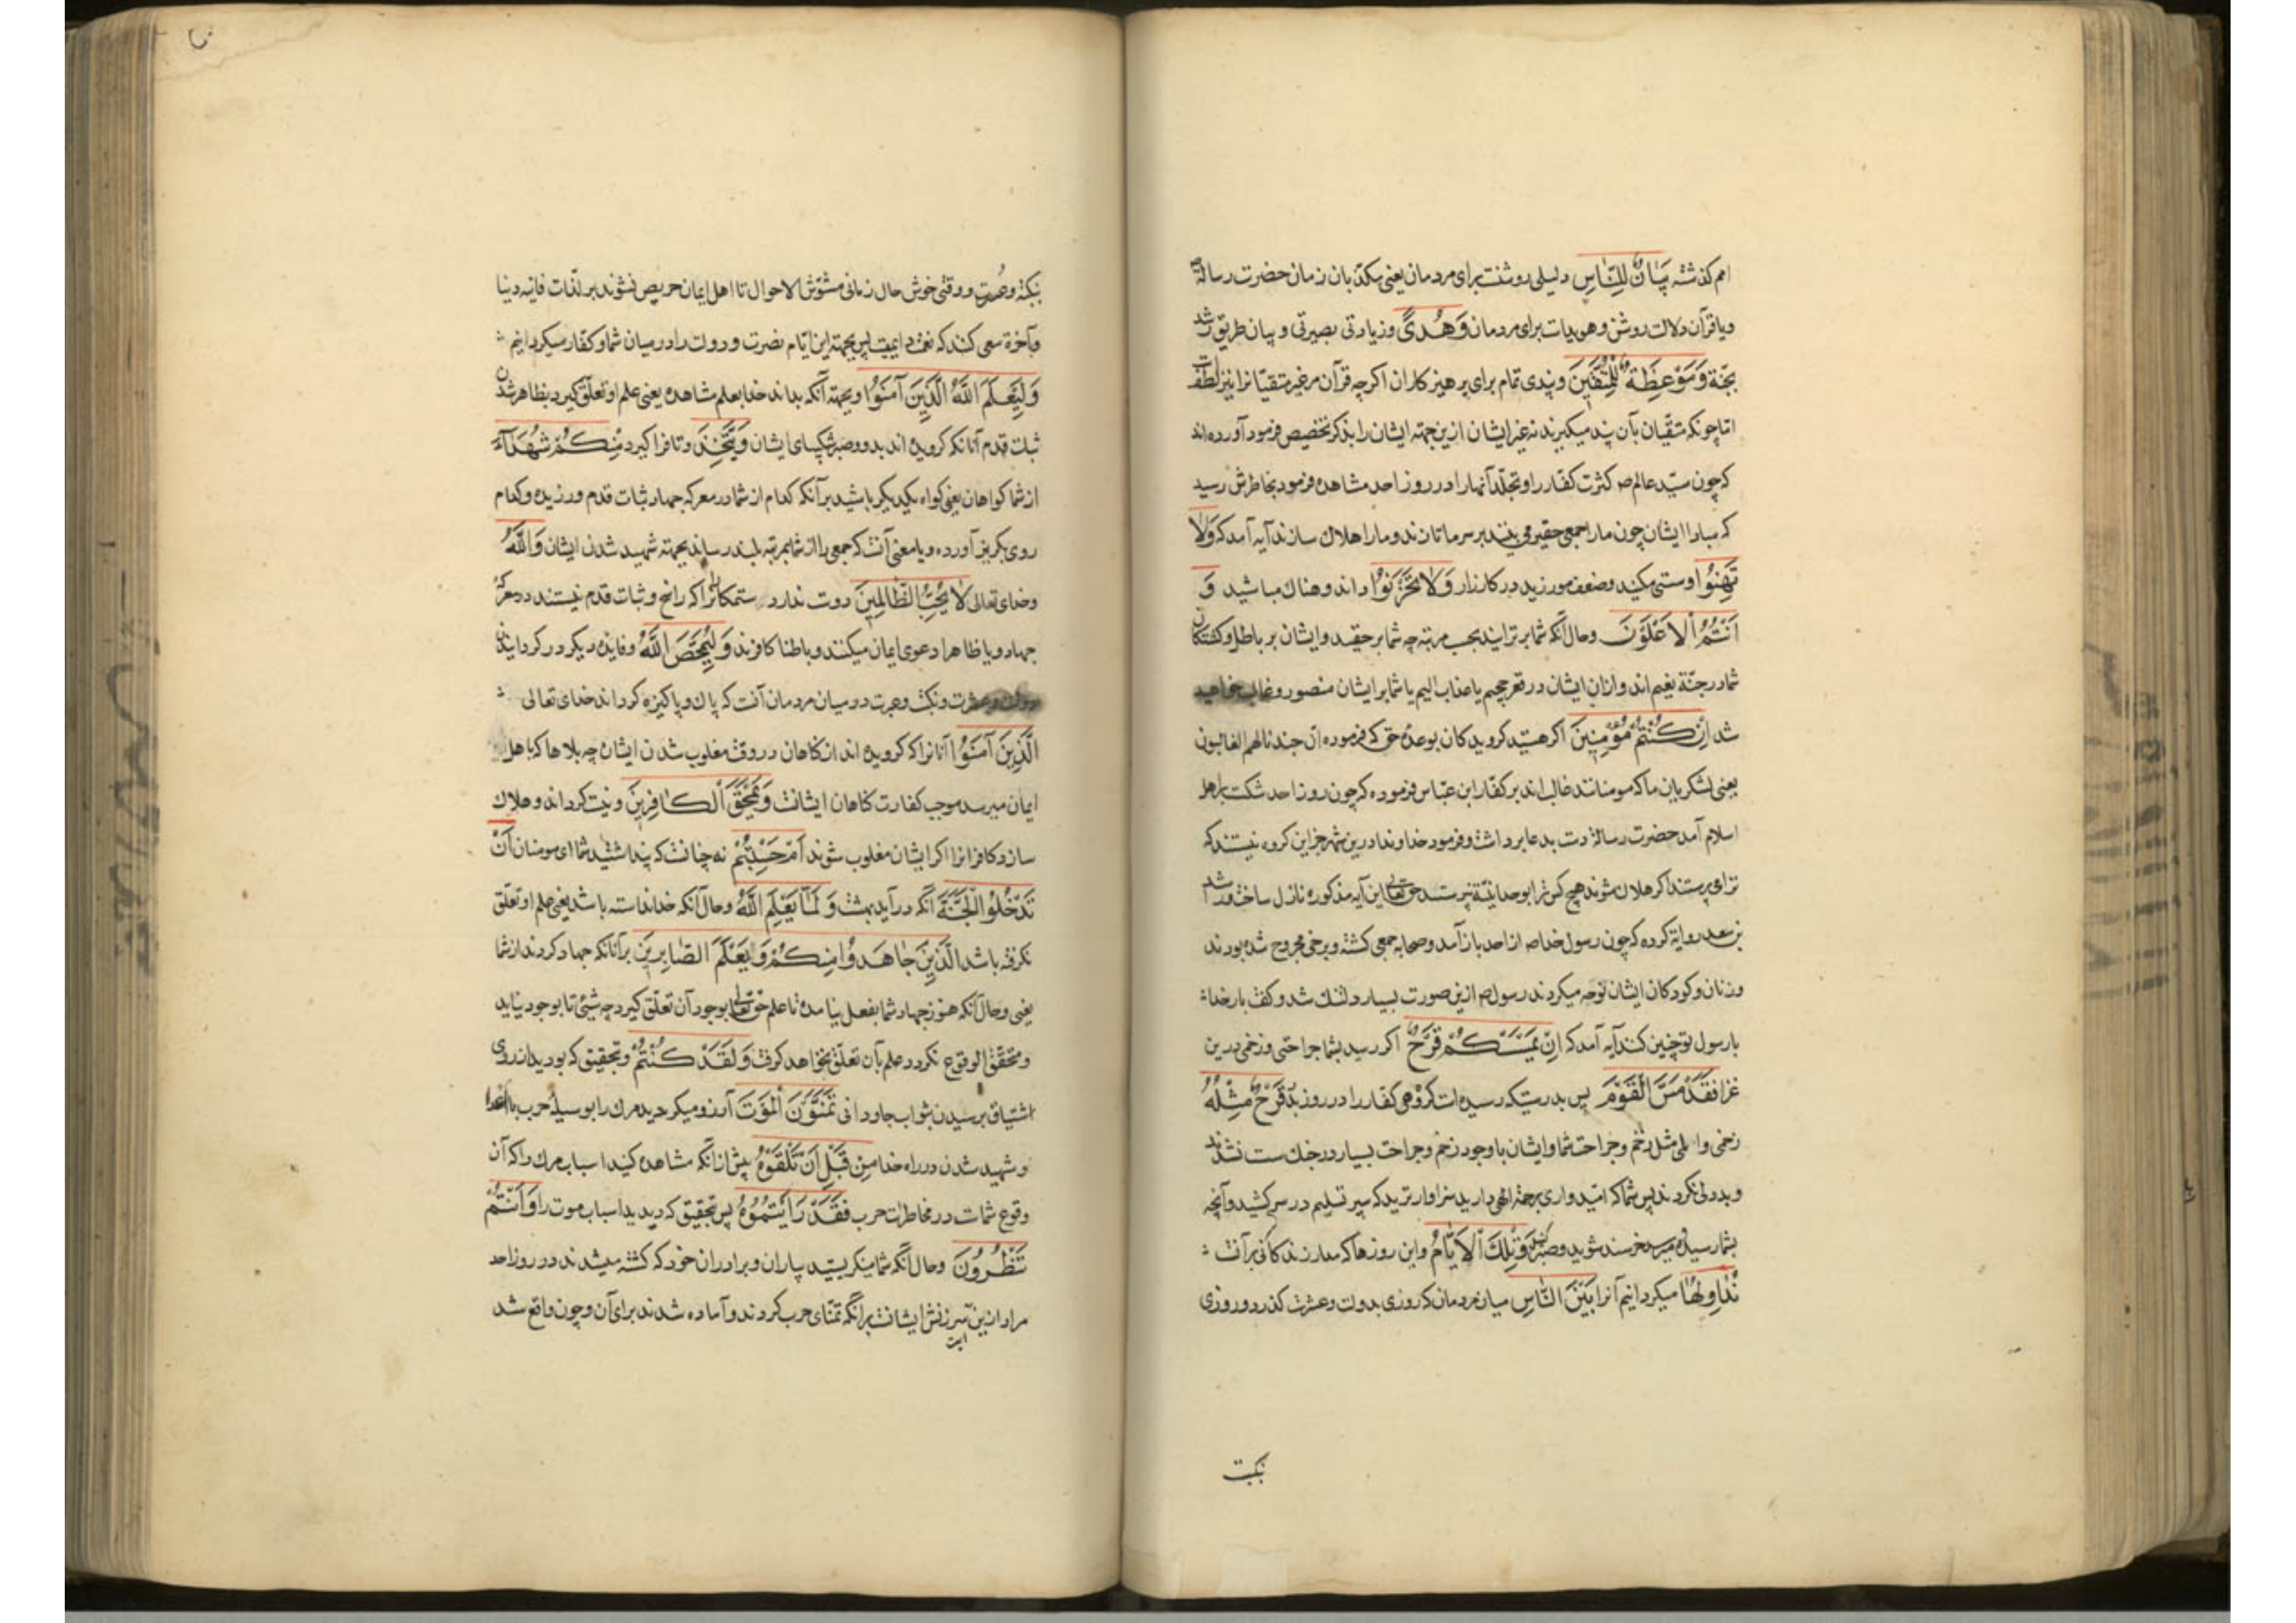 امم گذشته بَيَانٌ لِلنَّاسِ دلیلی روشنست برای مردمان یعنی مکذبان زمان حضرت رسالة
و یا قرآن دلالت روشن و هویداست برای مردمان وَهُدًی و زیادتی بصیرتی و بیان طریق رشد
بجنة وَمَوْعِظَةٌ لِلْمُتَّقِينَ و پندی تمام برای پرهیزکاران اگرچه قرآن مر غیر متقیانرا نیز لطفست
اما چونکه متقیان بآن پند میگیرند نه غیر ایشان ازین جهته ایشان را بذکر تخصیص فرمود آورده اند
که چون سید عالم ص کثرت کفار را و تجلد آنها را در روز احد مشاهده فرمود بخاطرش رسید
که مبادا ایشان چون ما را جمعی حقیر می بینند بر سر ما تازند و ما را هلاک سازند آیه آمد که وَلَا
تَهِنُوا و سستی مکنید و ضعف مورزید در کارزار وَلَا تَحْزَنُوا و اندوهناک مباشید وَ
أَنْتُمُ الْأَعْلَوْنَ و حال آنکه شما برترانید بحسب مرتبه چه شما بر حقید و ایشان بر باطل و کشتکان
شما در جنة نعیم اند و ازان ایشان در قعر جحیم با عذاب الیم یا شما بر ایشان منصور و غالب خواهید
شد إِنْ كُنْتُمْ مُؤْمِنِينَ اگر هستید گرویدگان بوعده حق که فرموده ان جندنا لهم الغالبون
یعنی لشکریان ما که مومنانند غالب اند بر کفار ابن عباس فرموده که چون روز احد شکست بر اهل
اسلام آمد حضرت رسالة دست بدعا برداشت و فرمود خداوندا درین شهر جز این گروه نیستند که
ترا می پرستند اگر هلاک شوند هیچ کس ترا بوحدانیة نپرستد حق تعالی این آیه مذکوره نازل ساخت و راشد
بن سعد روایة کرده که چون رسول خدا ص از احد باز آمد و صحابه جمعی کشته و برخی مجروح شده بودند
و زنان و کودکان ایشان نوحه میکردند رسول ص ازین صورت بسیار دلتنک شد و گفت بار خدا
با رسول تو چنین کنند آیه آمد که إِنْ يَمْسَسْكُمْ قَرْحٌ اگر رسید بشما جراحتی و زخمی درین
غزا فَقَدْ مَسَّ الْقَوْمَ پس بدرستیکه رسیده است گروهی کفار را در روز بدر قَرْحٌ مِثْلُهُ
زخمی و المی مثل زخم و جراحت شما و ایشان با وجود زخم و جراحت بسیار در جنک سست نشدند
و بددلی نکردند پس شما که امیدواری برحمة الهی دارید سزاوارترید که سپر تسلیم در سر کشید و آنچه
بشما رسیده خرسند شوید و صبر کنید وَتِلْكَ الْأَيَّامُ و این روزها که مدار زندگانی برآنست
نُدَاوِلُهَا میگردانیم آنرا بَيْنَ النَّاسِ میان مردمان که روزی بدولت و عشرت گذرد و روزی
نکبت
نکبت و عسرت و وقتی خوش حال زمانی مشوش الاحوال تا اهل ایمان حریص نشوند بر لذات فانیه دنیا
و بآخرة سعی کنند که نعمت دایمیست پس بجهته این ایام نصرت و دولت را در میان شما و کفار میگردانیم
وَلِيَعْلَمَ اللَّهُ الَّذِينَ آمَنُوا و بجهته آنکه بداند خدا بعلم مشاهده یعنی علم او تعلق گیرد بظاهر شدن
ثبات قدم آنانکه گرویده اند بدو و صبر و شکیبای ایشان وَيَتَّخِذَ و تا فرا گیرد مِنْكُمْ شُهَدَاءَ
از شما گواهان یعنی گواه یکدیگر باشید بر آنکه کدام از شما در معرکه جهاد ثبات قدم ورزیده و کدام
روی بگریز آورده و یا معنی آنست که جمعی را از شما بمرتبه بلند رساند بجهته شهید شدن ایشان وَاللَّهُ
و خدای تعالی لَا يُحِبُّ الظَّالِمِينَ دوست ندارد ستمکارانرا که راسخ و ثبات قدم نیستند در معرکه
جهاد و یا ظاهرا دعوی ایمان میکنند و باطنا کافرند وَلِيُمَحِّصَ اللَّهُ و فایده دیگر در گردانیدن
دولت و عشرت و نکبت و عسرت در میان مردمان آنست که پاک و پاکیزه گرداند خدای تعالی
الَّذِينَ آمَنُوا آنانرا که گرویده اند از گناهان در وقت مغلوب شدن ایشان چه بلاها که باهل
ایمان میرسد موجب کفارت گناهان ایشانست وَيَمْحَقَ الْكَافِرِينَ و نیست گرداند و هلاک
سازد کافرانرا اگر ایشان مغلوب شوند أَمْ حَسِبْتُمْ نه چنانست که پنداشتید شما ای مومنان أَنْ
تَدْخُلُوا الْجَنَّةَ آنکه در آیید ببهشت وَلَمَّا يَعْلَمِ اللَّهُ و حال آنکه خدا ندانسته باشد یعنی علم او تعلق
نگرفته باشد الَّذِينَ جَاهَدُوا مِنْكُمْ وَيَعْلَمَ الصَّابِرِينَ بر آنانکه جهاد کردند از شما
یعنی و حال آنکه هنوز جهاد شما بفعل نیامده تا علم حق تعالی بوجود آن تعلق گیرد چه شیئی تا بوجود نیاید
و متحقق الوقوع نگردد علم بآن تعلق نخواهد گرفت وَلَقَدْ كُنْتُمْ و بتحقیق که بودید از روی
اشتیاق برسیدن بثواب جاودانی تَمَنَّوْنَ الْمَوْتَ آرزو میکردید مرک را بوسیله حرب با اعدا
و شهید شدن در راه خدا مِنْ قَبْلِ أَنْ تَلْقَوْهُ پیش ازآنکه مشاهده کنید اسباب مرک را که آن
وقوع شماست در مخاطرات حرب فَقَدْ رَأَيْتُمُوهُ پس بتحقیق که دیدید اسباب موت را وَأَنْتُمْ
تَنْظُرُونَ و حال آنکه شما مینگریستید یاران و برادران خود که کشته میشدند در روز احد
مراد ازین سرزنش ایشانست برآنکه تمنای حرب کردند و آماده شدند برای آن و چون واقع شد